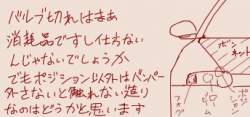 バルブ切れはまぁ
消耗品ですし仕方ない
んじゃないでしょうか
でもポジション以外はバンパー
外さないと触れない造り
なのはどうかと思います
ボンネット
フォグ
ビーム
ポジション